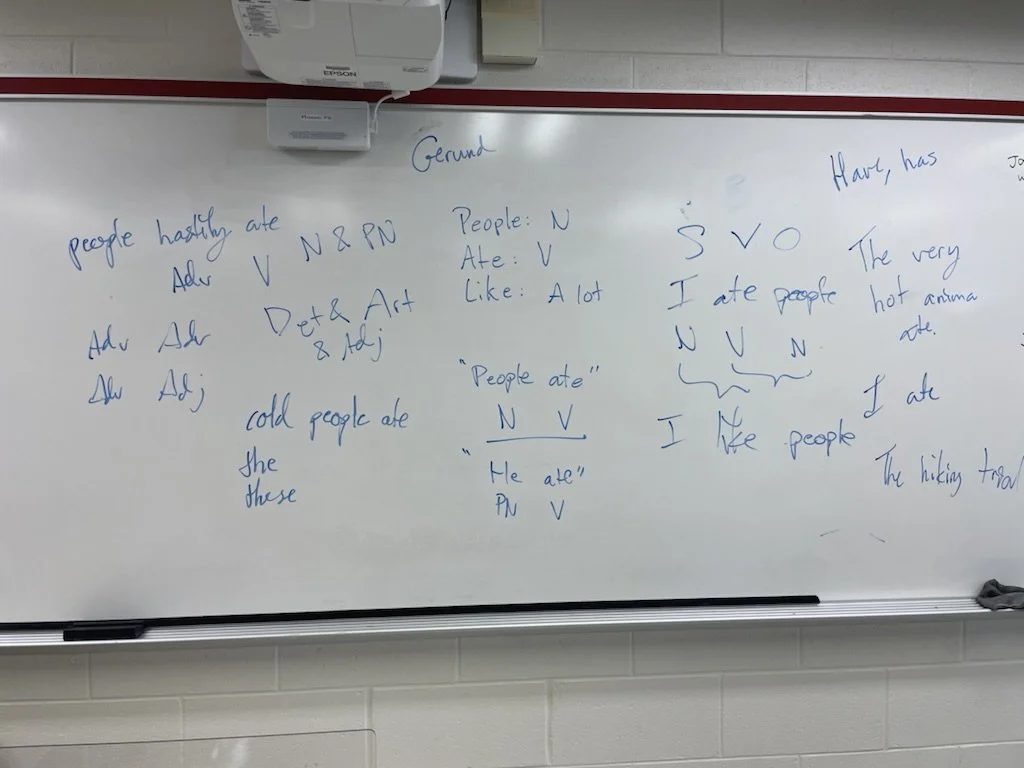 EPSON
Gerund
Have, has
people hastily ate
Adv V
N & PN
Adv Adv
Adv Adj
Det & Art
& Adj
cold people ate
the
these
People: N
Ate: V
Like: A lot
"People ate"
N V
"He ate"
PN V
S V O
I ate people
N V N
I like people
The very
hot anima
ate.
I ate
The hiking